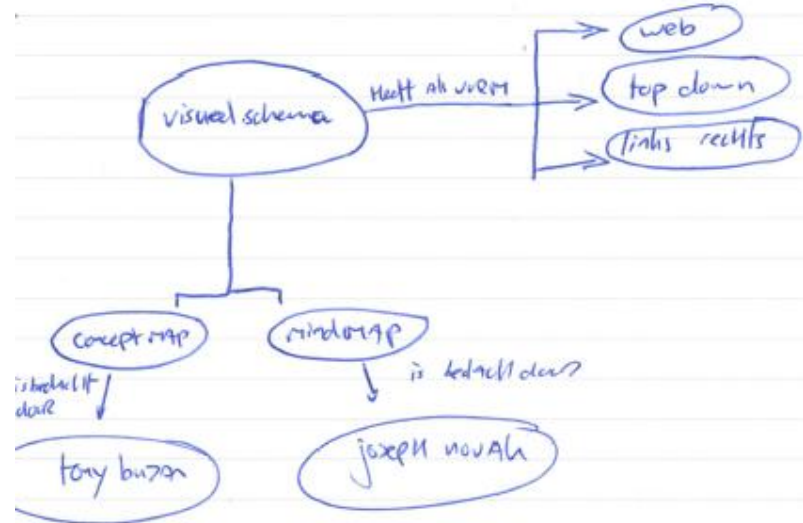 web
visueel schema
Heeft als vorm
top down
links rechts
conceptmap
mindmap
is bedacht
door
is bedacht door
tony buzan
joseph novak